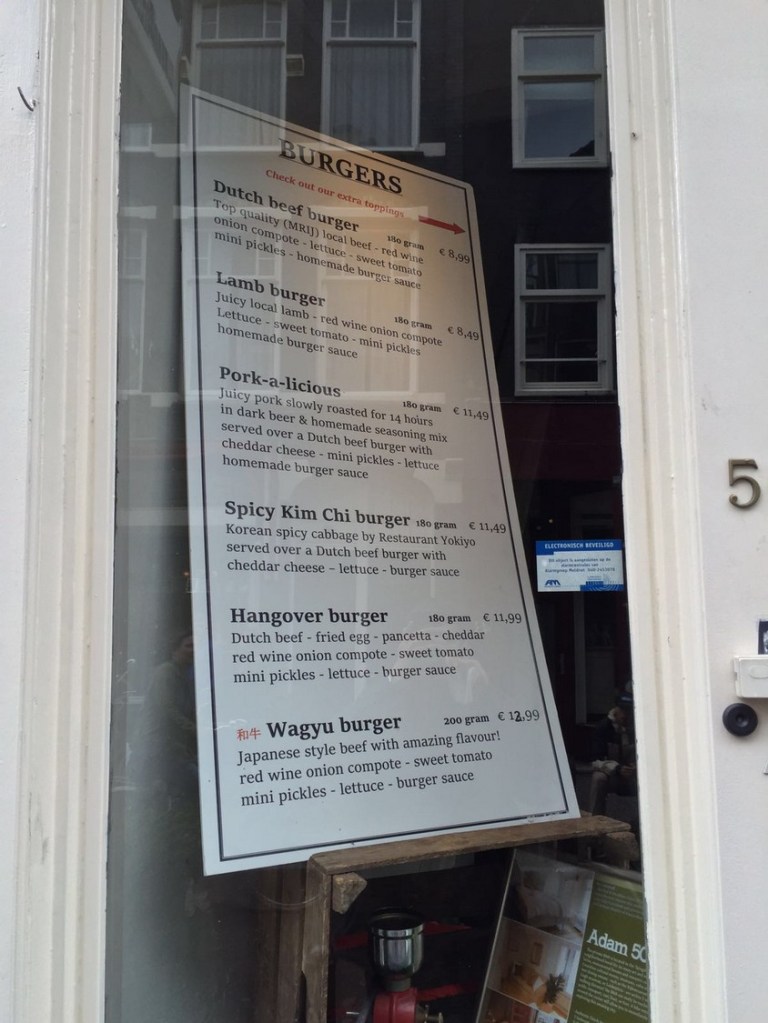 BURGERS
Check out our extra toppings
Dutch beef burger 180 gram € 8,99
Top quality (MRIJ) local beef - red wine
onion compote - lettuce - sweet tomato
mini pickles - homemade burger sauce
Lamb burger 180 gram € 8,49
Juicy local lamb - red wine onion compote
Lettuce - sweet tomato - mini pickles
homemade burger sauce
Pork-a-licious 180 gram € 11,49
Juicy pork slowly roasted for 14 hours
in dark beer & homemade seasoning mix
served over a Dutch beef burger with
cheddar cheese - mini pickles - lettuce
homemade burger sauce
Spicy Kim Chi burger 180 gram € 11,49
Korean spicy cabbage by Restaurant Yokiyo
served over a Dutch beef burger with
cheddar cheese - lettuce - burger sauce
Hangover burger 180 gram € 11,99
Dutch beef - fried egg - pancetta - cheddar
red wine onion compote - sweet tomato
mini pickles - lettuce - burger sauce
和牛 Wagyu burger 200 gram € 12,99
Japanese style beef with amazing flavour!
red wine onion compote - sweet tomato
mini pickles - lettuce - burger sauce
5
ELECTRONISCH BEVEILIGD
Adam 50